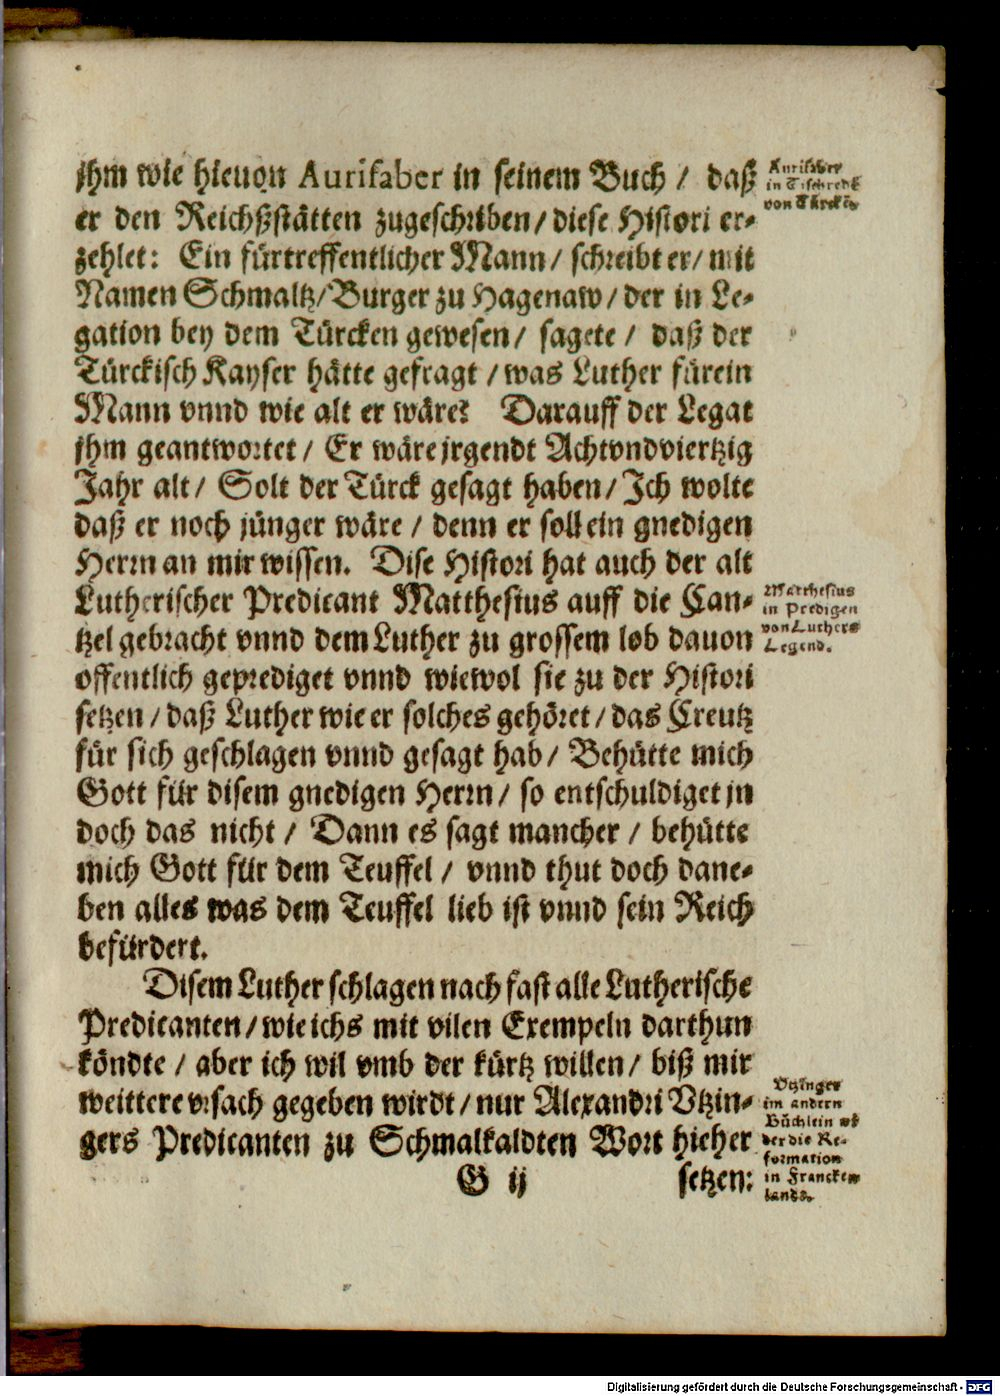 jhm wie hieuon Aurifaber in seinem Buch / daß
er den Reichßstätten zugeschriben / diese Histori er-
zehlet: Ein fürtreffentlicher Mann / schreibt er / mit
Namen Schmaltz / Burger zu Hagenaw / der in Le-
gation bey dem Türcken gewesen / sagete / daß der
Türckisch Kayser hätte gefragt / was Luther für ein
Mann vnnd wie alt er wäre? Darauff der Legat
jhm geantwortet / Er wäre jrgendt Achtvndviertzig
Jahr alt / Solt der Türck gesagt haben / Ich wolte
daß er noch jünger wäre / denn er soll ein gnedigen
Herrn an mir wissen. Dise Histori hat auch der alt
Lutherischer Predicant Matthesius auff die Can-
tzel gebracht vnnd dem Luther zu grossem lob dauon
offentlich geprediget vnnd wiewol sie zu der Histori
setzen / daß Luther wie er solches gehöret / das Creutz
für sich geschlagen vnnd gesagt hab / Behütte mich
Gott für disem gnedigen Herrn / so entschuldiget jn
doch das nicht / Dann es sagt mancher / behütte
mich Gott für dem Teuffel / vnnd thut doch dane-
ben alles was dem Teuffel lieb ist vnnd sein Reich
befürdert.
Disem Luther schlagen nach fast alle Lutherische
Predicanten / wie ichs mit vilen Exempeln darthun
köndte / aber ich wil vmb der kürtz willen / biß mir
weittere vrsach gegeben wirdt / nur Alexandri Vtzin-
gers Predicanten zu Schmalkaldten Wort hieher
G ij setzen:
Aurifaber
in Tischred.
von Türckẽ.
Matthesius
in Predigen
von Luthers
Legend.
Vtzinger
im andern
Büchlein wi
der die Re-
formation
in Francken
lande.
Digitalisierung gefördert durch die Deutsche Forschungsgemeinschaft - DFG